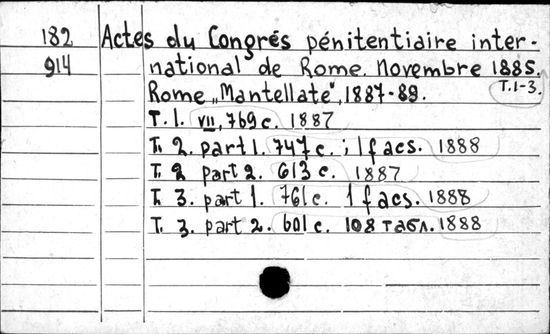 182 Actes du Congrés pénitentiaire inter-
914 national de Rome. Novembre 1885.
Rome „Mantellate", 1887-89. T.1-3.
T. 1. VII, 769 c. 1887
T. 2. part 1. 747 c.; 1 facs. 1888
T. 2 part 2. 613 c. 1887
T. 3. part 1. 761 c. 1 facs. 1888
T. 3. part 2. 601 c. 108 табл. 1888